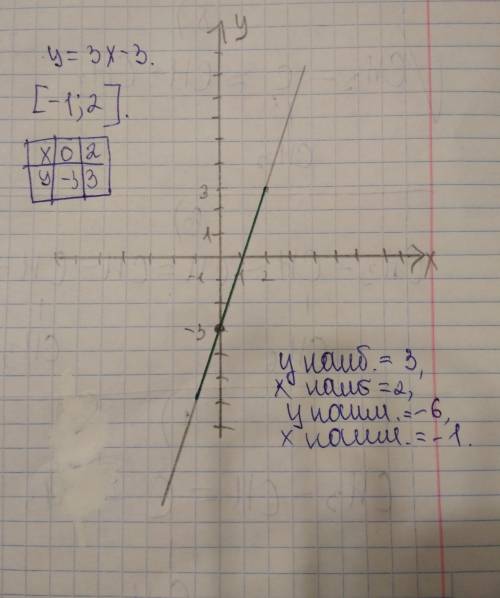 y = 3x - 3.
[-1; 2].
x 0 2
y -3 3
y
3
1
-1 2 x
-3
y наиб. = 3,
x наиб = 2,
y наим. = -6,
x наим. = -1.